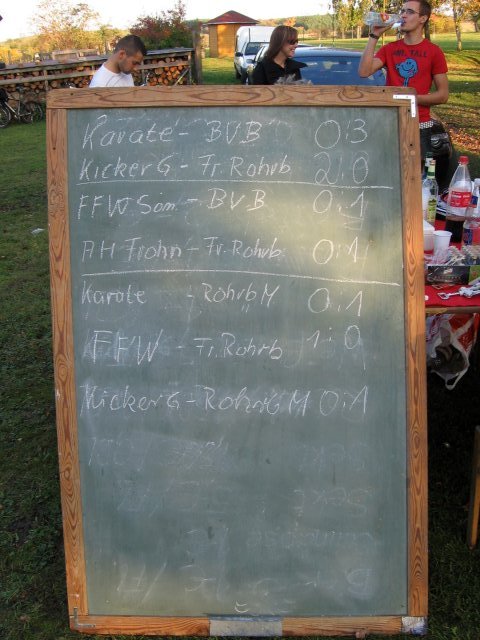 Karate - BVB 0:3
Kicker G - Fr. Rohrb 2:0
FFW Som - BVB 0:1
AH Frohn - Fr. Rohrb 0:1
Karate - Rohrb M 0:1
FFW - Fr. Rohrb 1:0
Kicker G - Rohrb G M 0:1